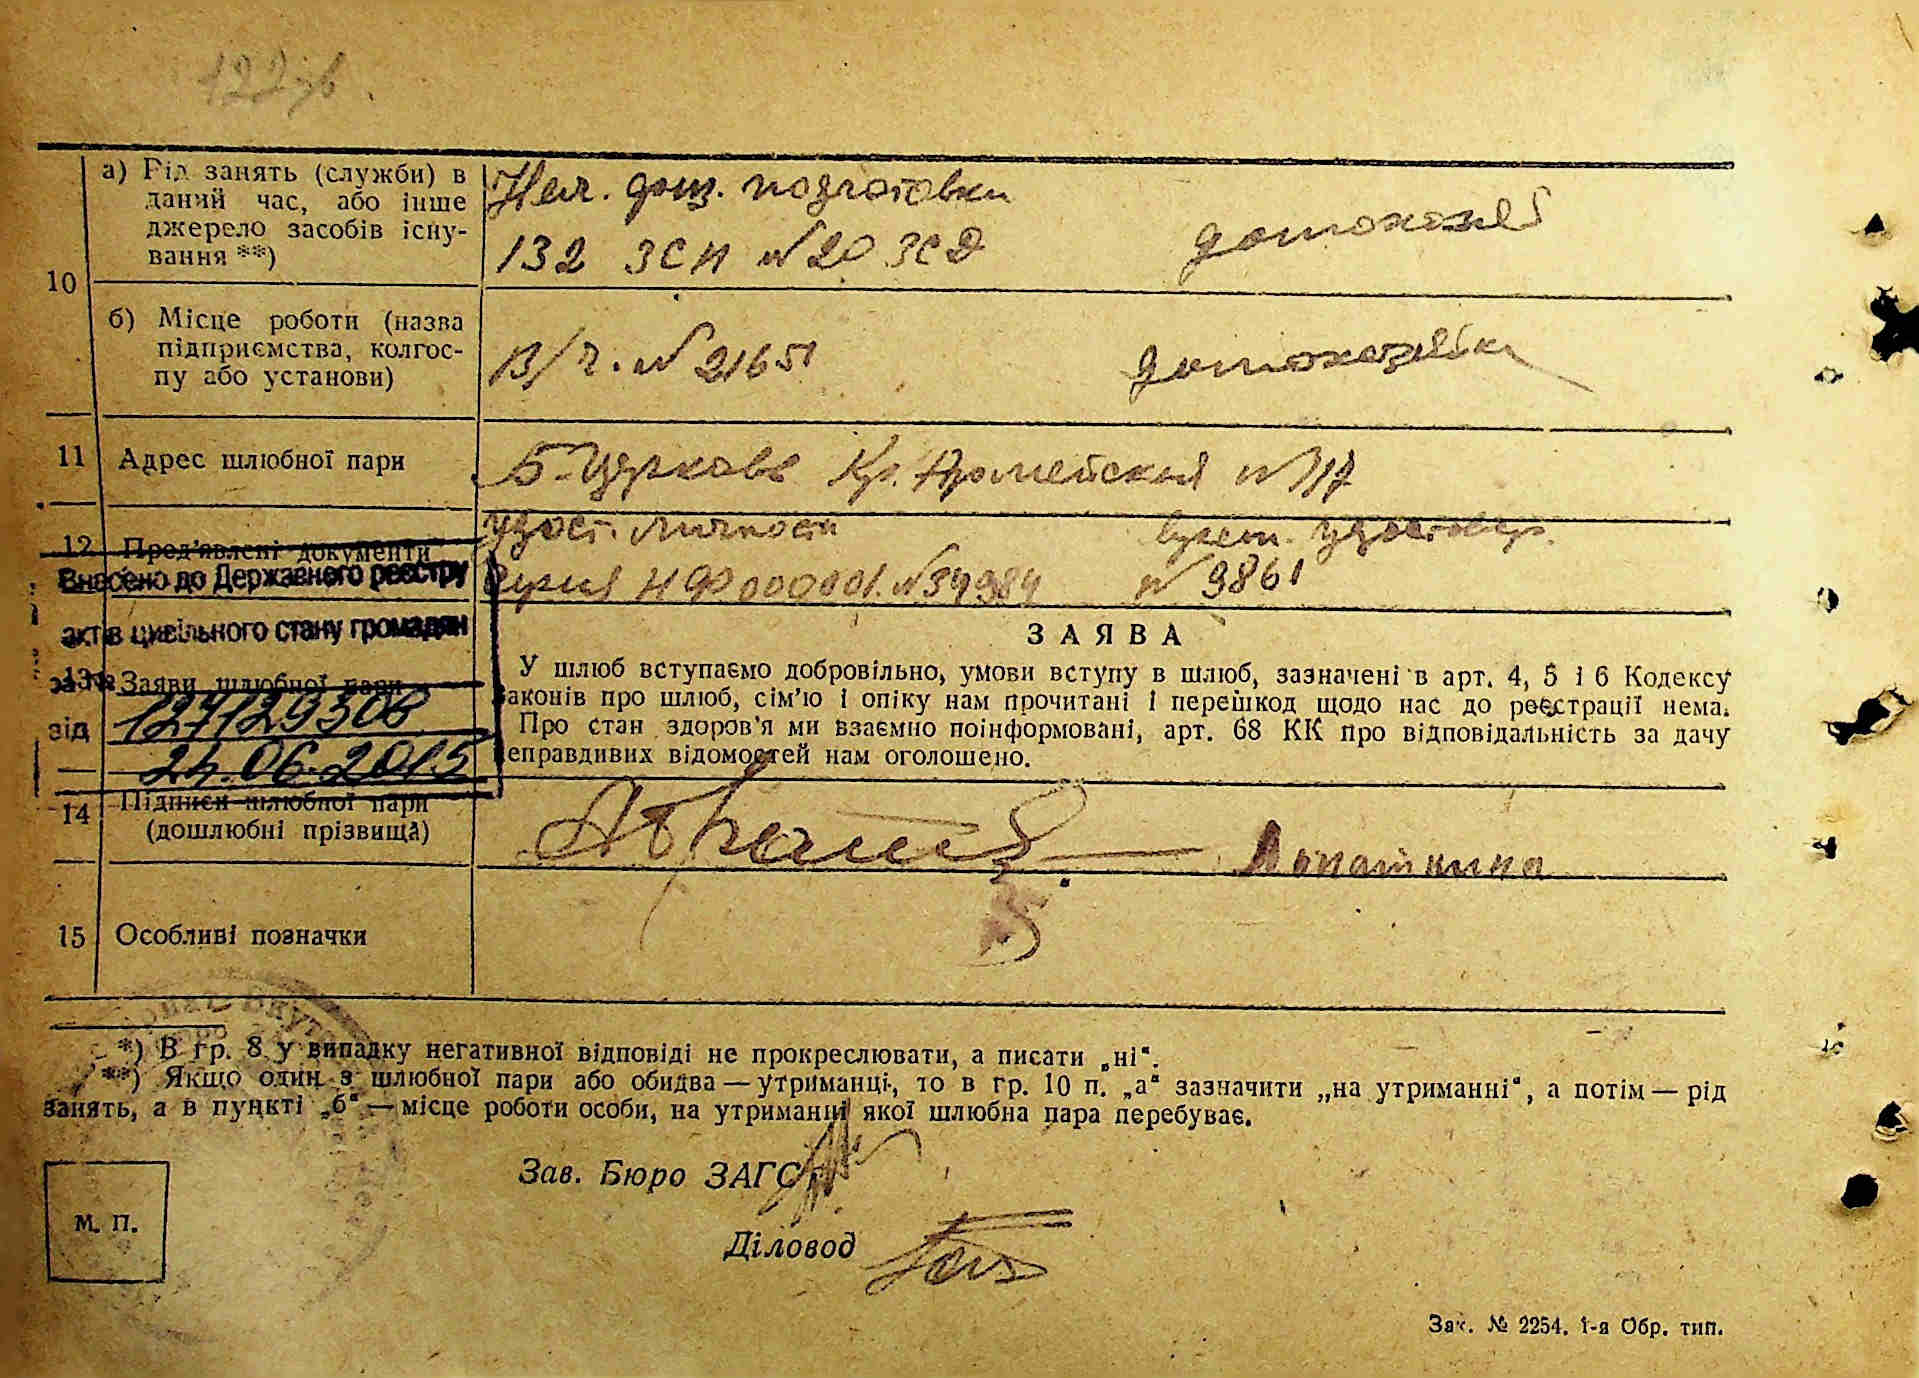 122
а) Рід занять (служби) в
даний час, або інше
джерело засобів існу-
вання **)
10
Нач. физ. подготовки
132 ЗСП № 20 ЗСД
домохозяй
б) Місце роботи (назва
підприємства, колгос-
пу або установи)
В/ч. № 21651
домохозяйка
11 Адрес шлюбної пари
Б-Церковь Кр. Армейская № 117
12 Пред'явлені документи
Удост. личности
серия НФ 000001. № 34984
удостовер.
№ 9861
Внесено до Державного реєстру
актів цивільного стану громадян
за №
127129306
від
24.06.2015
13 Заяви шлюбної пари
ЗАЯВА
У шлюб вступаємо добровільно, умови вступу в шлюб, зазначені в арт. 4, 5 і 6 Кодексу
законів про шлюб, сім'ю і опіку нам прочитані і перешкод щодо нас до реєстрації нема.
Про стан здоров'я ми взаємно поінформовані, арт. 68 КК про відповідальність за дачу
неправдивих відомостей нам оголошено.
14 Підписи шлюбної пари
(дошлюбні прізвища)
Лопаткина
15 Особливі позначки
*) В гр. 8 у випадку негативної відповіді не прокреслювати, а писати „ні“.
**) Якщо один з шлюбної пари або обидва — утриманці, то в гр. 10 п. „а“ зазначити „на утриманні“, а потім — рід
занять, а в пункті „б“ — місце роботи особи, на утриманні якої шлюбна пара перебуває.
Зав. Бюро ЗАГС
М. П.
Діловод
Зак. № 2254. 1-я Обр. тип.